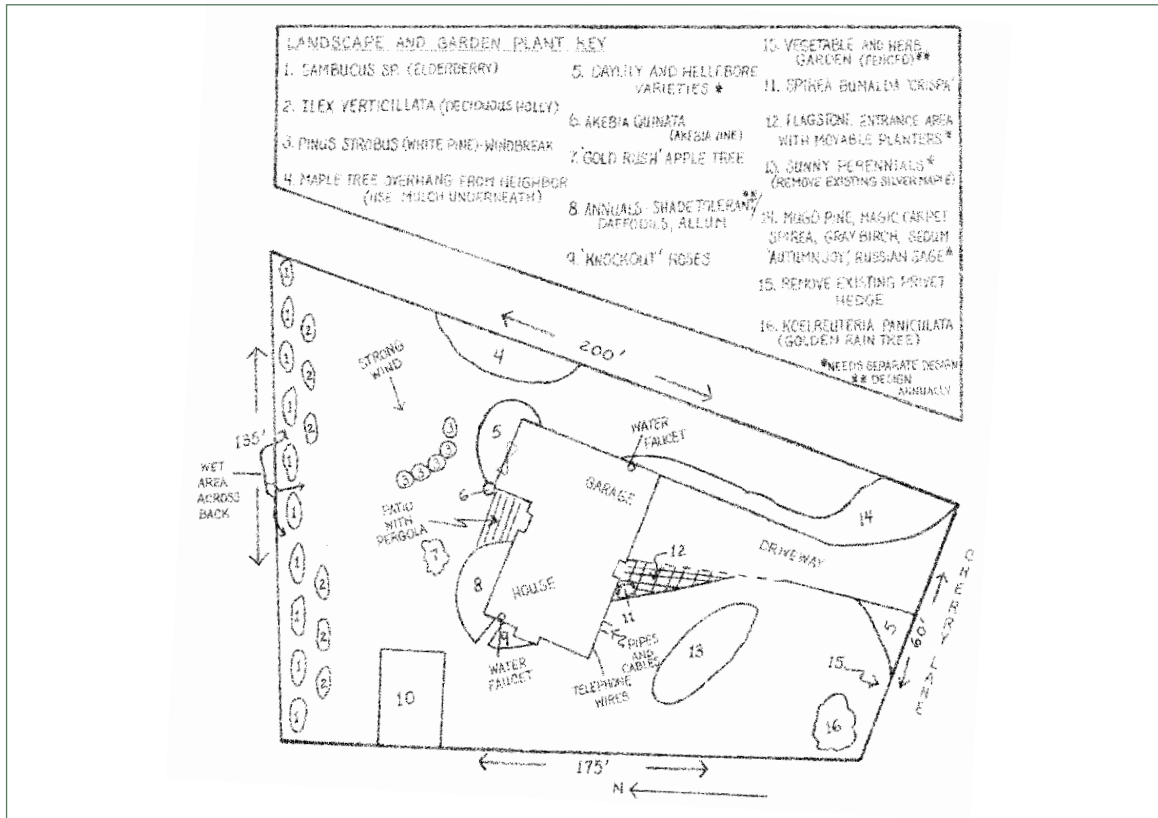 LANDSCAPE AND GARDEN PLANT KEY
1. SAMBUCUS SP. (ELDERBERRY)
2. ILEX VERTICILLATA (DECIDUOUS HOLLY)
3. PINUS STROBUS (WHITE PINE)-WINDBREAK
4. MAPLE TREE OVERHANG FROM NEIGHBOR
(USE MULCH UNDERNEATH)
5. DAYLILY AND HELLEBORE
VARIETIES *
6. AKEBIA QUINATA
(AKEBIA VINE)
7. 'GOLD RUSH' APPLE TREE
8. ANNUALS-SHADE TOLERANT**/
DAFFODILS, ALLUM
9. 'KNOCKOUT' ROSES
10. VEGETABLE AND HERB
GARDEN (FENCED)**
11. SPIREA BUMALDA 'CRISPA'
12. FLAGSTONE ENTRANCE AREA
WITH MOVABLE PLANTERS*
13. SUNNY PERENNIALS*
(REMOVE EXISTING SILVER MAPLE)
14. MUGO PINE, MAGIC CARPET
SPIREA, GRAY BIRCH, SEDUM
'AUTUMN JOY', RUSSIAN SAGE*
15. REMOVE EXISTING PRIVET
HEDGE
16. KOELREUTERIA PANICULATA
(GOLDEN RAIN TREE)
*NEEDS SEPARATE DESIGN
** DESIGN
ANNUALLY
1
1
2
1
2
1
2
1
1
1
2
1
2
1
2
1
135'
WET
AREA
ACROSS
BACK
STRONG
WIND
4
200'
3
3
3
3
3
5
6
PATIO
WITH
PERGOLA
7
8
9
WATER
FAUCET
10
WATER
FAUCET
GARAGE
HOUSE
12
11
PIPES
AND
CABLES
TELEPHONE
WIRES
13
14
DRIVEWAY
5
15
16
60'
CHERRY LANE
175'
N